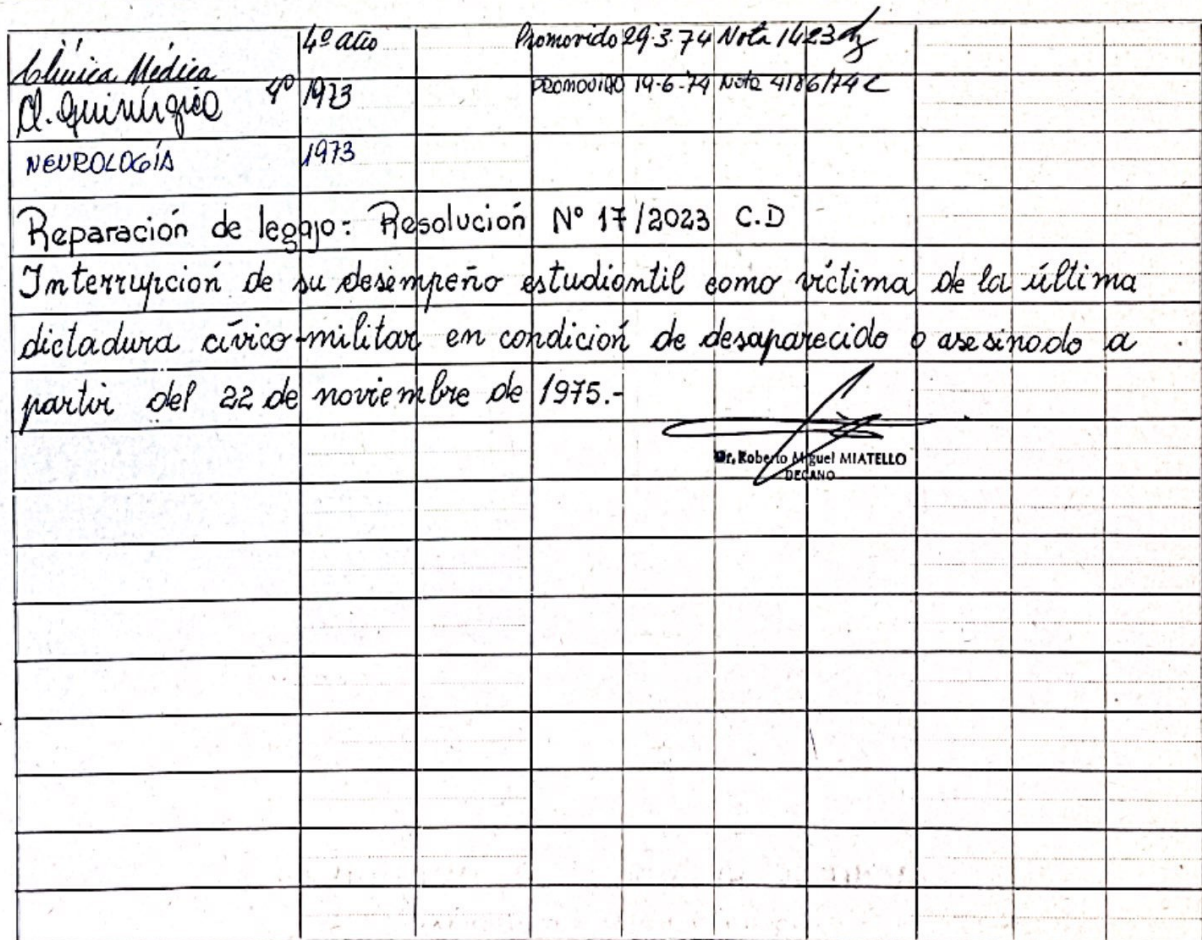 Clínica Médica 4º año Promovido 29.3.74 Nota 1423
Q. Quirúrgica 4º 1973 PROMOVIDO 19-6-74 Nota 4186/74 C
NEUROLOGÍA 1973
Reparación de legajo: Resolución Nº 17/2023 C.D
Interrupción de su desempeño estudiantil como víctima de la última
dictadura cívico-militar en condición de desaparecido o asesinado a
partir del 22 de noviembre de 1975.-
Dr. Roberto Miguel MIATELLO
DECANO